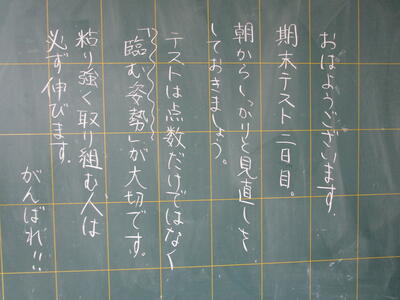 おはようございます。
期末テスト二日目。
朝からしっかりと見直しを
しておきましょう。
テストは点数だけではなく
「臨む姿勢」が大切です。
粘り強く取り組む人は
必ず伸びます。
がんばれ!!